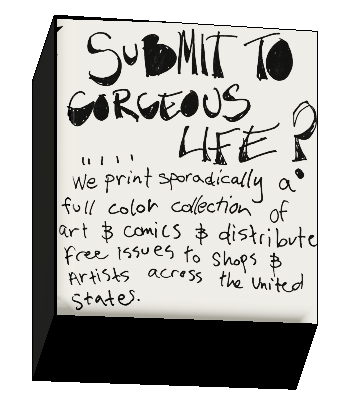 SUBMIT TO
GORGEOUS
LIFE?
We print sporadically a
full color collection of
art & comics & distribute
free issues to shops &
Artists across the United
States.